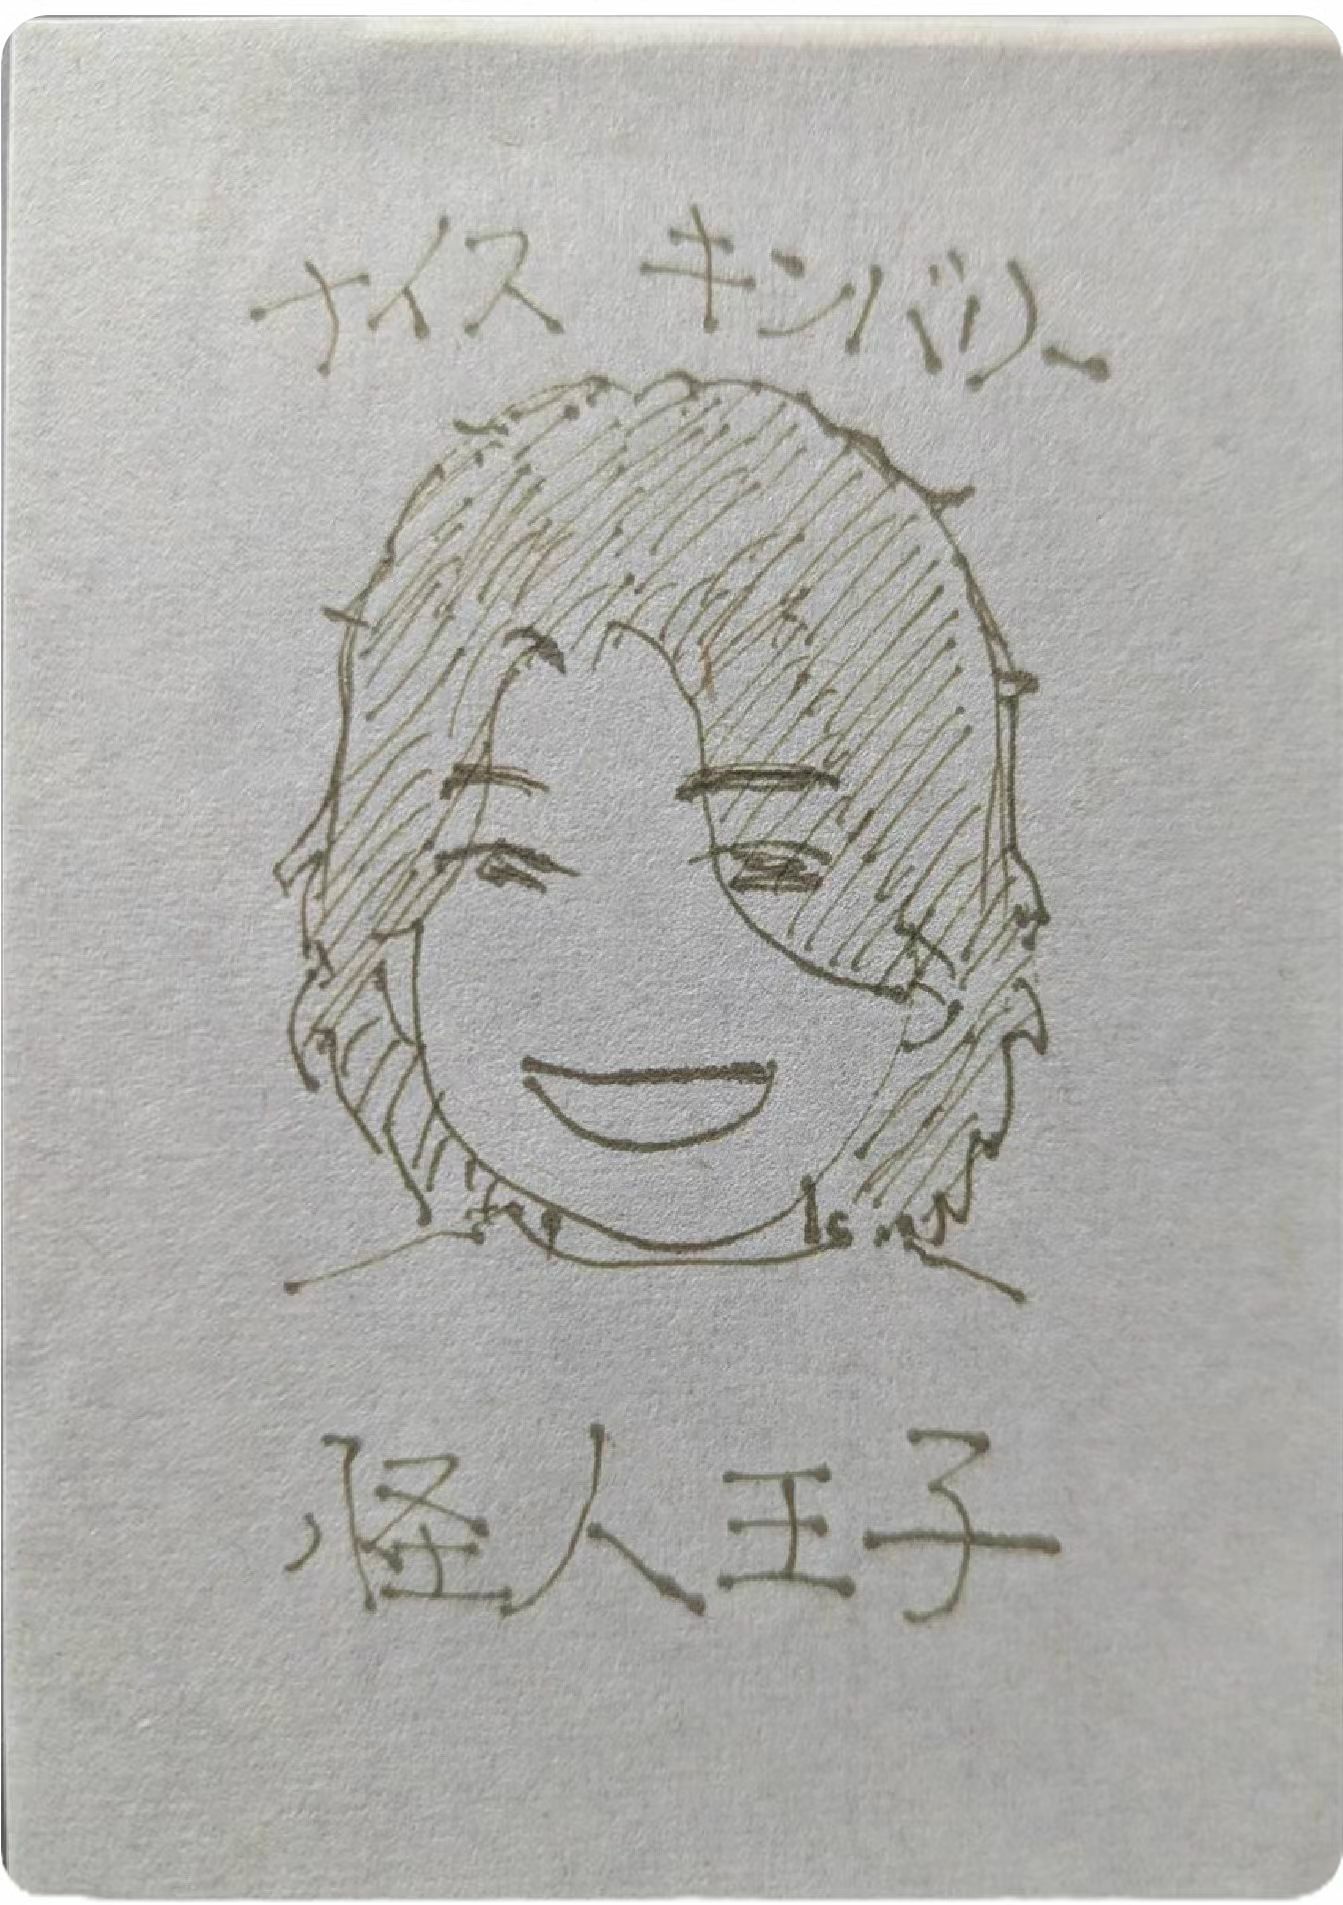 ナイス キンバリー
怪人王子